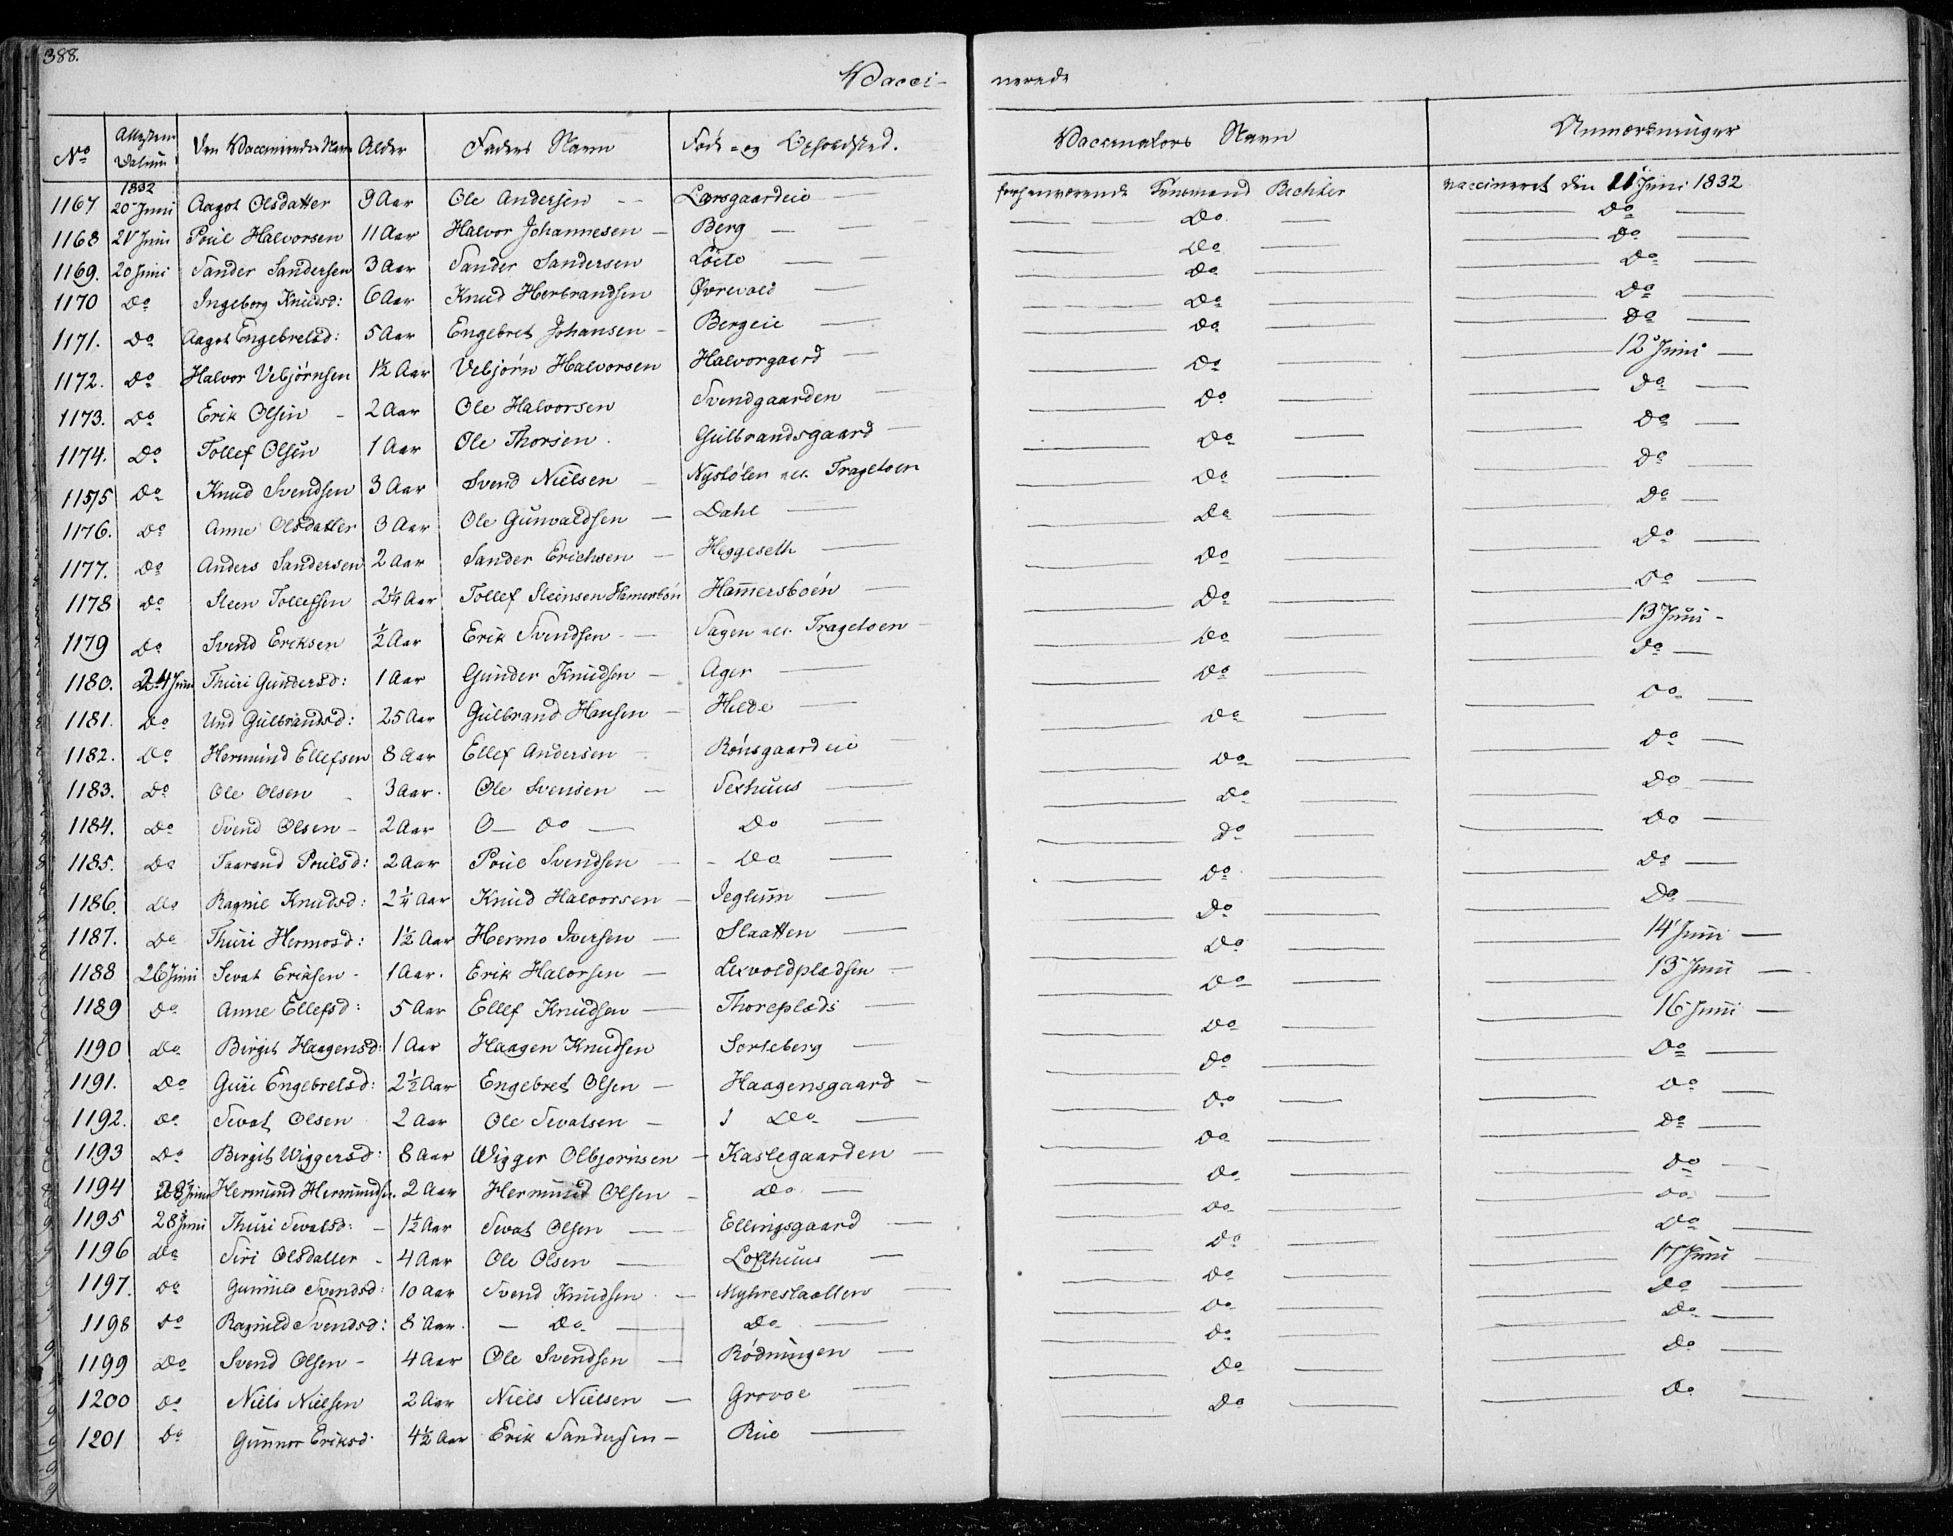 388.
Vacci- nerede
No Attestens Datum Den Vaccineredes Navn Alder Faders Navn Føde- og Opholdsted. Vaccinators Navn Anmærkninger
1832
1167 20 Juni Aagot Olsdatter 9 Aar Ole Andersen — Larsgaardeie — forhenværende Lensmand Richter vaccineret den 11 Juni 1832
1168 21 Juni Poul Halvorsen 11 Aar Halvor Johannesen — Berg — Do — Do —
1169. 20 Juni Sander Sandersen 3 Aar Sander Sandersen Løite — Do — Do —
1170 Do Ingeborg Knudsd: 6 Aar Knud Herbrandsen Øvrevold — Do — Do —
1171. Do Aagot Engebretsd: 5 Aar Engebret Johansen — Bergeie — Do — Do —
1172. Do Halvor Vebjørnsen 1½ Aar Vebjørn Halvorsen Halvorgaard — Do — 12 Juni —
1173. Do Erik Olsen - 2 Aar Ole Halvorsen Svendgaarden — Do — Do —
1174. Do Tollef Olsen 1 Aar Ole Thorsen. Gulbrandsgaard — Do — Do —
1175 Do Knud Svendsen 3 Aar Svend Nielsen — Nystølen all. Tragetoen Do — Do —
1176. Do Anne Olsdatter 3 Aar Ole Gunvaldsen — Dahl — Do — Do —
1177. Do Anders Sandersen 2 Aar Sander Erichsen — Heggeseth — Do — Do —
1178 Do Steen Tollefsen 2¼ Aar Tollef Steensen Hamersbøn Hammersboén — Do — Do —
1179 Do Svend Eriksen ½ Aar Erik Svendsen — Sagen all. Tragetoen — Do — 13 Juni -
1180. 24 Juni Thuri Gundersd: 1 Aar Gunder Knudsen — Ager — Do — Do —
1181. Do Und Gulbrandsd: 25 Aar Gulbrand Hansen — Helde — Do — Do —
1182. Do Hermund Ellefsen 8 Aar Ellef Andersen — Rónsgaardeie — Do — Do —
1183. Do Ole Olsen - 3 Aar. Ole Svensen — Sexhuus — Do — Do —
1184. Do Svend Olsen - 2 Aar O — Do — Do — Do — Do —
1185. Do Taarand Poulsd: 2 Aar Poul Svendsen — Do — Do — Do —
1186. Do Ragnil Knudsd: 2¼ Aar Knud Halvorsen — Jeglum — Do — Do —
1187. Do Thuri Hermosd: 1½ Aar Hermo Iversen — Slaatten — Do — 14 Juni —
1188 26 Juni Sevat Eriksen - 1 Aar. Erik Halorsen — Lixvoldpladsen — Do — 15 Juni —
1189 Do Anne Ellefsd: 5 Aar Ellef Knudsen — Thoreplads — Do — 16 Juni —
1190 Do Birgit Haagensd: 1 Aar Haagen Knudsen Sorteberg — Do — Do —
1191. Do Guri Engebretsd: 2½ Aar Engebret Olsen — Haagensgaard — Do — Do —
1192. Do Sevat Olsen 2 Aar Ole Sevatsen — Do — Do — Do —
1193 Do Birgit Wiggersd: 8 Aar Wigger Olbjørnsen — Kastegaarden — Do — Do —
1194 28 Juni Hermund Hermundsn. 2 Aar Hermund Olsen — Do — Do — Do —
1195 28 Juni Thuri Sevatsd: - 1½ Aar Sevat Olsen — Ellingsgaard — Do — Do —
1196 Do Siri Olsdatter - 4 Aar Ole Olsen — Lofthuus — Do — 17 Juni
1197. Do Gunnild Svendsd: 10 Aar Svend Knudsen — Myhreslaatten — Do — Do —
1198 Do Ragnild Svendsd: 8 Aar. — Do — Do — Do — Do —
1199 Do Svend Olsen - 4 Aar Ole Svendsen — Rødningen — Do — Do —
1200 Do Niels Nielsen 2 Aar Niels Nielsen — Grovoe — Do — Do —
1201 Do Gunnor Eriksd: 4½ Aar Erik Sandersen — Rue — Do